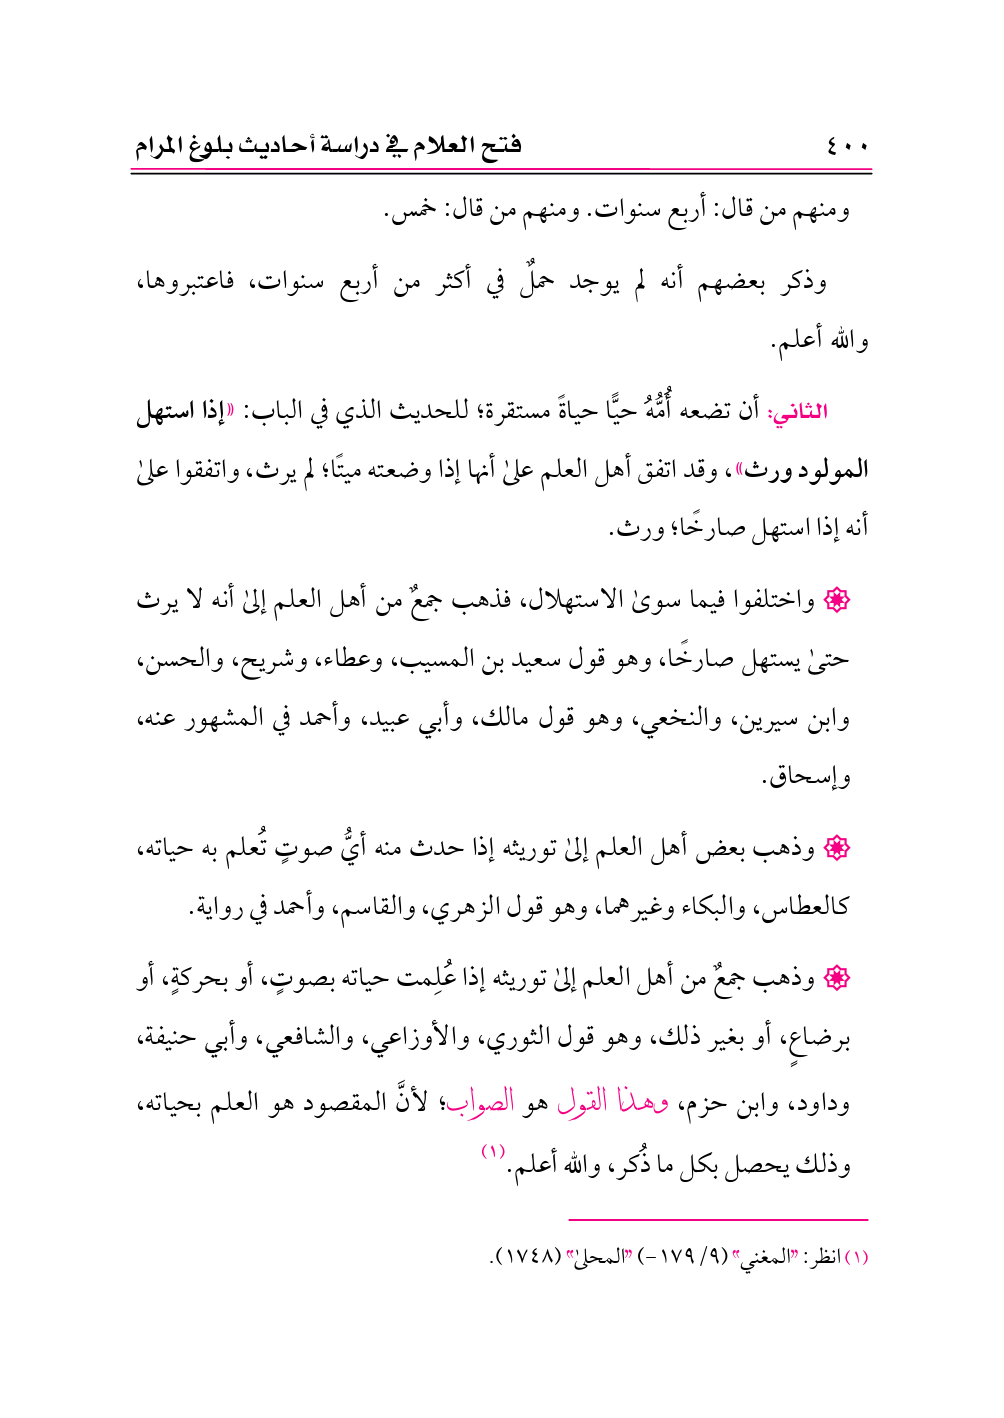 ٤٠٠ فتح العلام في دراسة أحاديث بلوغ المرام
ومنهم من قال: أربع سنوات. ومنهم من قال: خمس.
وذكر بعضهم أنه لم يوجد حملٌ في أكثر من أربع سنوات، فاعتبروها،
والله أعلم.
الثاني: أن تضعه أُمُّهُ حيًّا حياةً مستقرة؛ للحديث الذي في الباب: «إذا استهل
المولود ورث»، وقد اتفق أهل العلم علىٰ أنها إذا وضعته ميتًا؛ لم يرث، واتفقوا علىٰ
أنه إذا استهل صارخًا؛ ورث.
واختلفوا فيما سوىٰ الاستهلال، فذهب جمعٌ من أهل العلم إلىٰ أنه لا يرث
حتىٰ يستهل صارخًا، وهو قول سعيد بن المسيب، وعطاء، وشريح، والحسن،
وابن سيرين، والنخعي، وهو قول مالك، وأبي عبيد، وأحمد في المشهور عنه،
وإسحاق.
وذهب بعض أهل العلم إلىٰ توريثه إذا حدث منه أيُّ صوتٍ تُعلم به حياته،
كالعطاس، والبكاء وغيرهما، وهو قول الزهري، والقاسم، وأحمد في رواية.
وذهب جمعٌ من أهل العلم إلىٰ توريثه إذا عُلِمت حياته بصوتٍ، أو بحركةٍ، أو
برضاعٍ، أو بغير ذلك، وهو قول الثوري، والأوزاعي، والشافعي، وأبي حنيفة،
وداود، وابن حزم، وهذا القول هو الصواب؛ لأنَّ المقصود هو العلم بحياته،
وذلك يحصل بكل ما ذُكر، والله أعلم.(١)
(١) انظر: "المغني" (٩/ ١٧٩-) "المحلىٰ" (١٧٤٨).